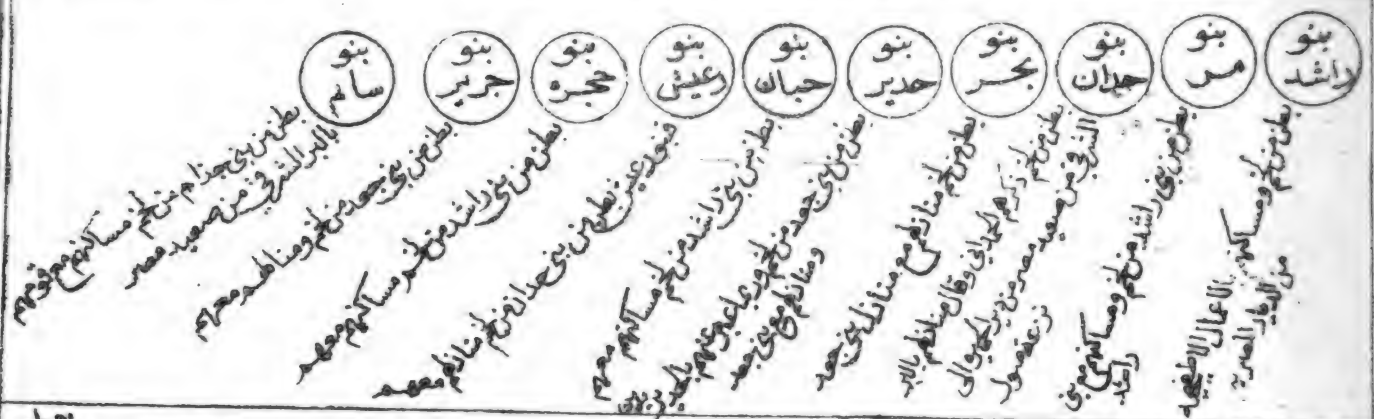 بنو
راشد
بطن من لخم ومساكنهم الاعمال الاطفيحيه
من الديار المصريه
بنو
مر
بطن من بني راشد من لخم ومساكنهم مع بني
راشد
بنو
حدان
بطن من لخم ذكرهم الحمداني وقال منازلهم بالبر
الشرقي من صعيد مصر من
بنو
بحر
بطن من لخم منازلهم مع منازل بني جعد
بنو
حدير
بطن من بني حدد من لخم
ومنازلهم مع بني جعد
بنو
حبان
بطن من بني راشد من لخم مساكنهم معهم
بنو
رعيش
فبنو رعيش بطن من بني حدان من لخم منازلهم معهم
بنو
حجره
بطن من بني راشد من لخم مساكنهم معهم
بنو
جرير
بطن من بني جعد من لخم ومنازلهم معهم
بنو
سالم
بطن من بني جذام من لخم مساكنهم مع قومهم
بالبر الشرقي من صعيد مصر